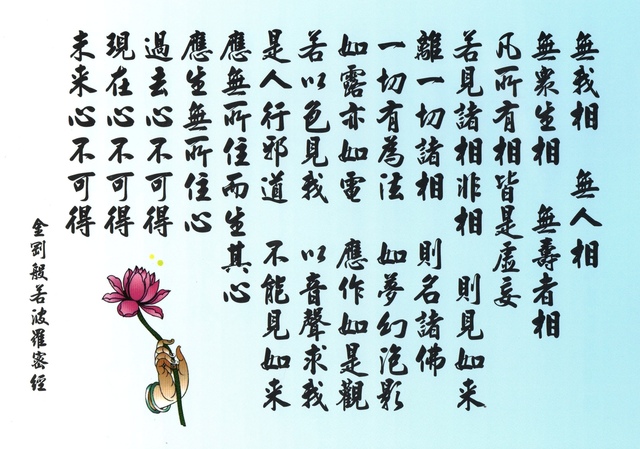 無我相　無人相
無眾生相　無壽者相
凡所有相皆是虛妄
若見諸相非相　則見如来
離一切諸相　則名諸佛
一切有為法　如夢幻泡影
如露亦如電　應作如是觀
若以色見我　以音聲求我
是人行邪道　不能見如来
應無所住而生其心
應生無所住心
過去心不可得
現在心不可得
未来心不可得
金剛般若波羅密經